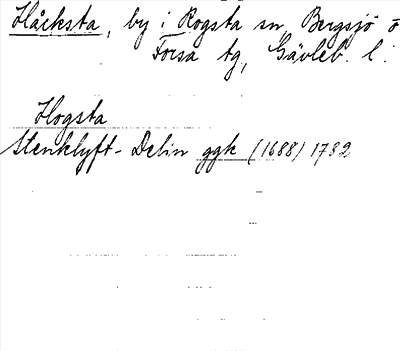 Håcksta, by i Rogsta sn Bergsjö o
Forsa tg, Gävleb. l.
Hogsta
Stenklyft- Delin ggk (1688) 1782